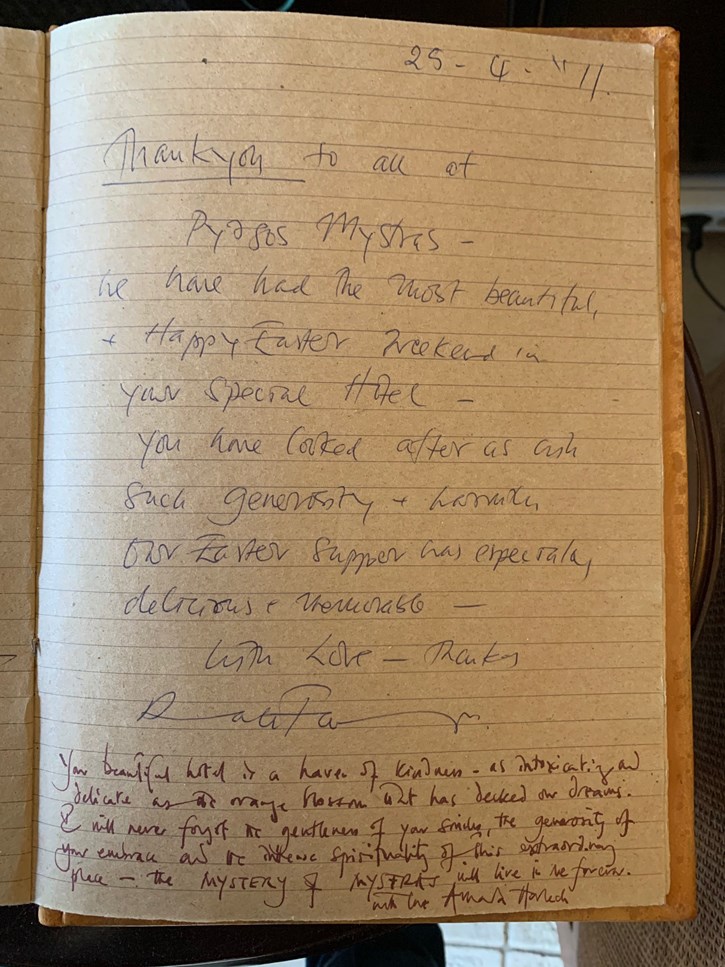 25 - 4 - '11.
Thankyou to all at
Pyrgos Mystras -
we have had the most beautiful,
+ Happy Easter Weekend in
your special Hotel -
You have looked after us with
such generosity + warmth,
our Easter Supper was especially
delicious + memorable —
With Love - Thanks
Your beautiful hotel is a haven of kindness - as intoxicating and
delicate as the orange blossom that has decked our dreams.
I will never forget the gentleness of your smiles, the generosity of
your embrace and the intense spirituality of this extraordinary
place - the MYSTERY of MYSTRAS will live in me forever.
with love Amanda Harlech